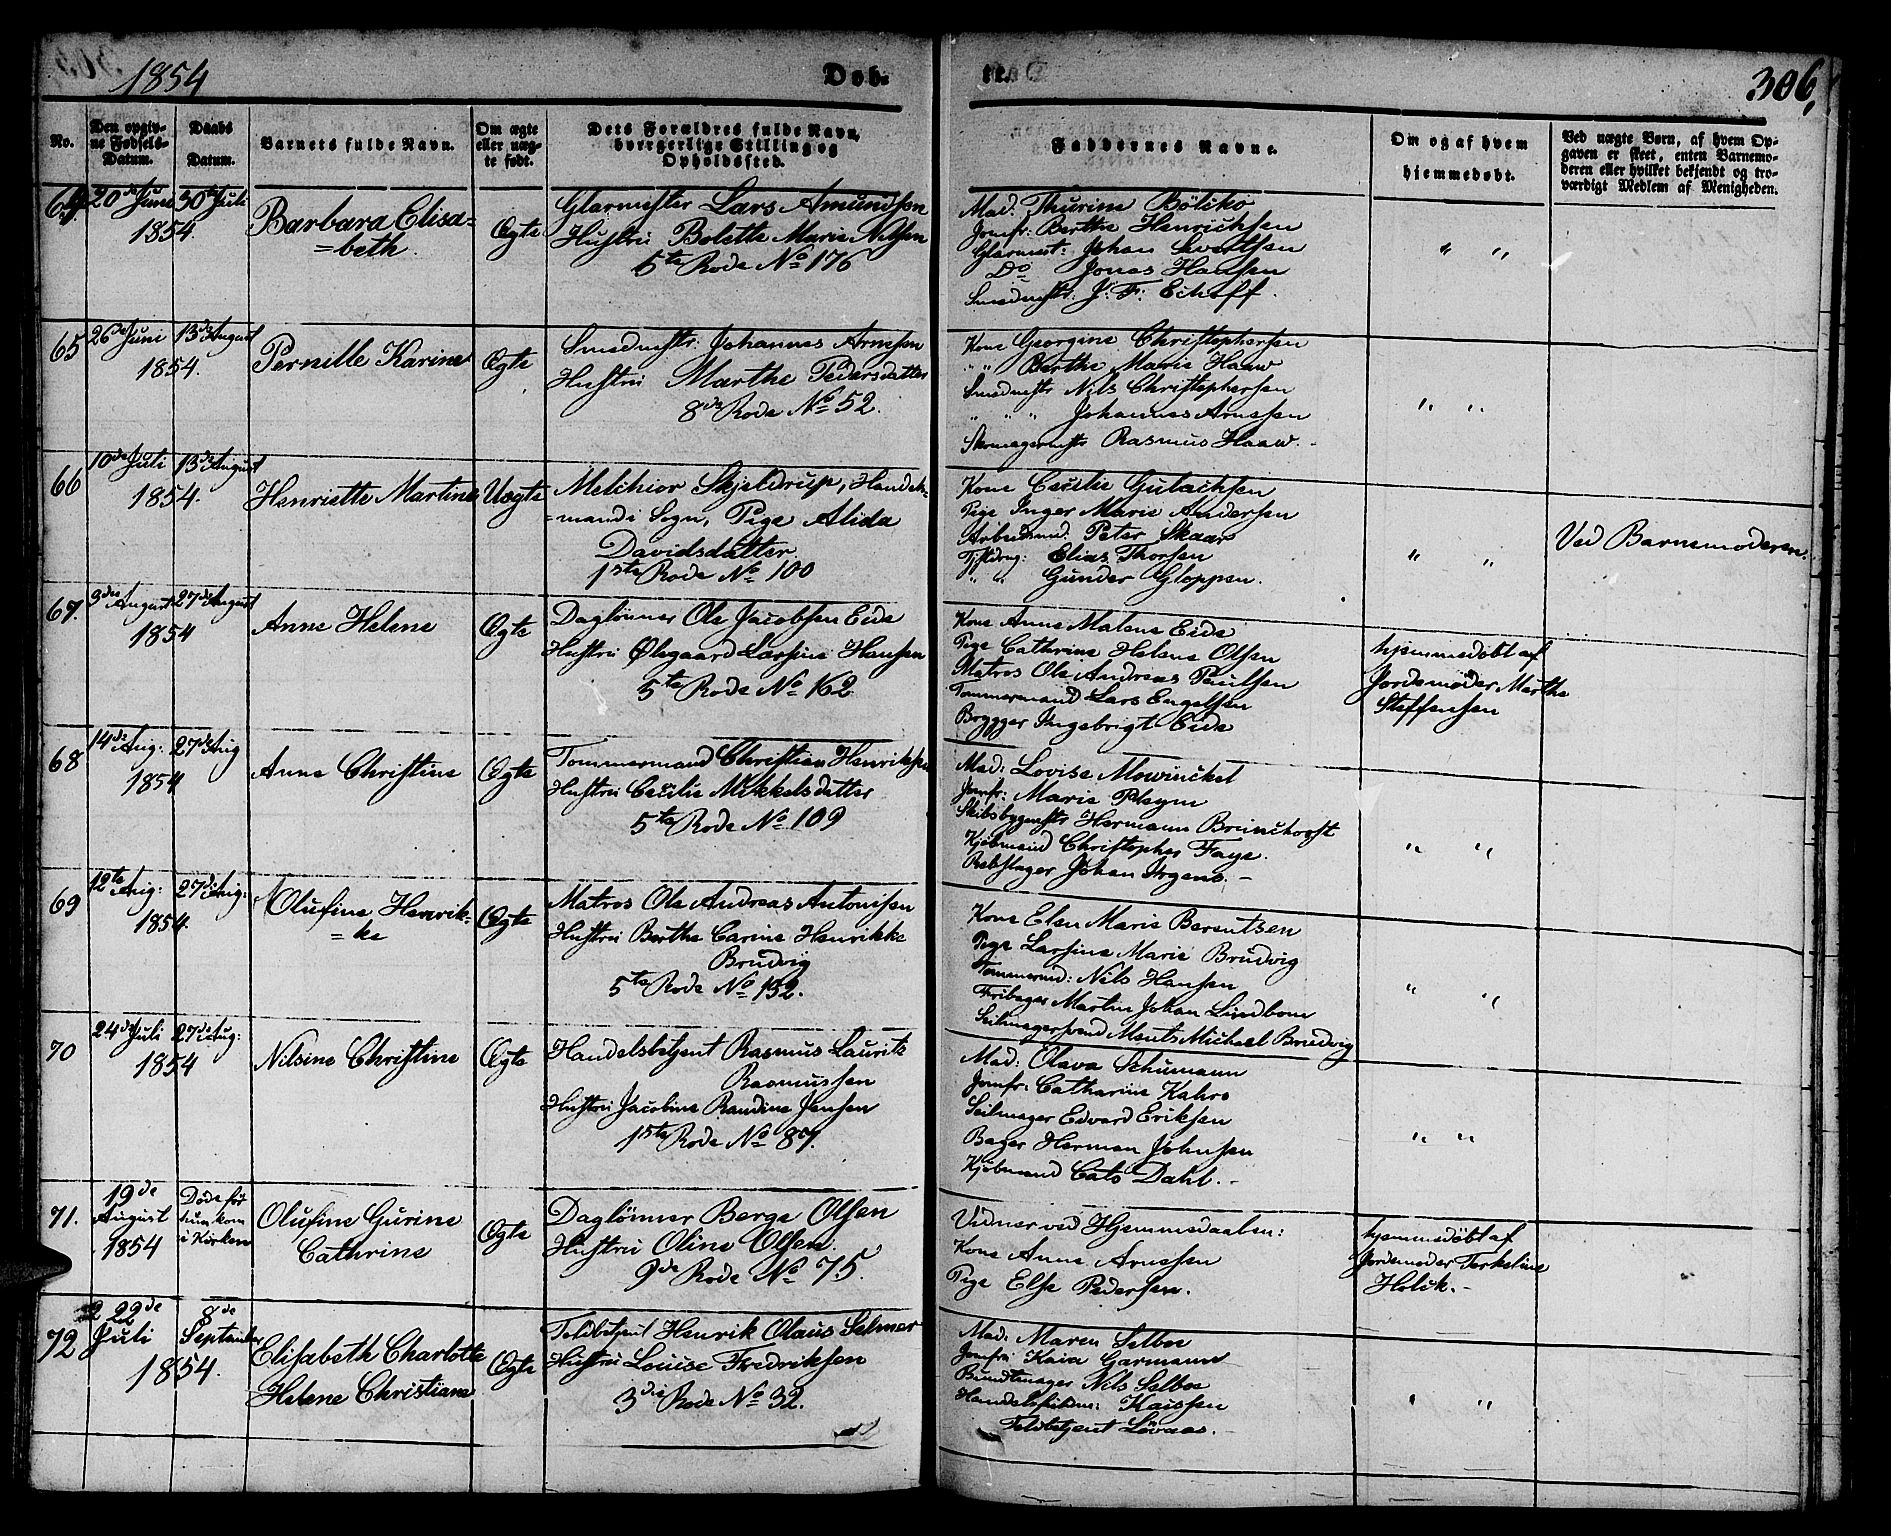 1854
Døb-
te.
306,
No.
Den opgiv-
ne Fødsels-
Datum.
Daabs
Datum.
Barnets fulde Navn.
Om ægte
eller uæg-
te født.
Dets Forældres fulde Navn,
borgerlige Stilling og
Opholdssted.
Faddernes Navne.
Om og af hvem
hjemmedøbt.
Ved uægte Børn, af hvem Op-
gaven er skeet, enten Barnemo-
deren eller hvilket bekjendt og tro-
værdigt Medlem af Menigheden.
64 20de Juni 30te Juli
1854.
Barbara Elisa-
=beth.
Ægte
Glarmester Lars Amundsen
Hustru Bolette Marie Nilsen
5te Rode No 176
Mad: Thurine Bötikö
Jomfr: Berthe Henrichsen
Glarmest: Johan Evertsen
Do Jonas Hansen
Smedmstr: J: F: Echoff.
" "
65 26de Juni 13de August
1854.
Pernille Karine
Ægte
Smedmstr: Johannes Arnesen
Hustru Marthe Pedersdatter
8de Rode No 52.
Kone Georgine Christophersen
" " Berthe Marie Haaw
Smedmstr Nils Christophersen
" " " Johannes Arnesen
Skomagermstr Rasmus Haaw.
" "
66 10de Juli 13de August
1854.
Henriette Martine
Uægte
Melchior Skjeldrup, Handels-
=mand i Sogn, Pige Alida
Davidsdatter.
1ste Rode No 100
Kone Cecilie Gulachsen
Pige Inger Marie Andersen
Arbeidsmd. Peter Skaar
Tjstdrng: Elias Thorsen
" " Gunder Gloppen.
" "
Ved Barnemoderen.
67. 3die August 27de August
1854
Anne Helene
Ægte
Daglønner Ole Jacobsen Eide
Hustru Ølegaard Larsine Hansen
5te Rode No 162
Kone Anne Malene Eide
Pige Cathrine Helene Olsen
Matros Ole Andreas Paulsen
Tømmermand Lars Engelsen
Brygger Ingebrigt Eide
hjemmedøbt af
Jordemoder Marthe
Steffensen
68 14de Aug: 27de Aug
1854
Anne Christine
Ægte
Tømmermand Christian Henriksen
Hustru Cecilie Mikkelsdatter
5te Rode No 109
Mad: Lovise Mowinckel
Jomfr: Marie Pleym
Skibsbygmstr Hermann Brunchorst
Kjöbmand Christopher Faye.
Rebslager Johan Irgens. -
" "
69 12te Aug: 27de Aug:
1854.
Olufine Henrik-
=ke
Ægte
Matros Ole Andreas Antonisen
Hustru Berthe Carine Henrikke
Brudvig
5te Rode No 152.
Kone Elen Marie Berentsen
Pige Larsine Marie Brudvig
Tømmermd: Nils Hansen
Fribager Martin Johan Lindbom
Seilmagersvend Ments Michael Brudvig
" "
70 24de Juli 27de Aug:
1854
Nilsine Christine
Ægte
Handelsbetjent Rasmus Lauritz
Rasmussen
Hustru Jacobine Randine Jensen
1ste Rode No 87.
Mad: Olava Schumann
Jomfr: Catharine Kahrs
Seilmager Edvard Eriksen
Bager Herman Johnsen
Kjöbmand Cats Dahl. -
" "
71. 19de
August
1854
Døde før
hun kom
i Kirken
Olufine Gurine
Cathrine
Ægte
Daglönner Berge Olsen
Hustru Oline Olsen.
9de Rode No 75.
Vidner ved Hjemmedaaben:
Kone Anne Arnesen
Pige Else Pedersen.
hjemmedøbt af
Jordemoder Terkeline
Holck. -
72 22de
Juli
8de
September
1854.
Elisabeth Charlotte
Helene Christiane
Ægte
Toldbetjent Henrik Olaus Selmer
Hustru Louise Fredriksen
3die Rode No 32.
Mad: Maren Selboe
Jomfru Kaia Garmann
Bundtmager Nils Selboe
Kaissen
Toldbetjent Lövaas. -
" "